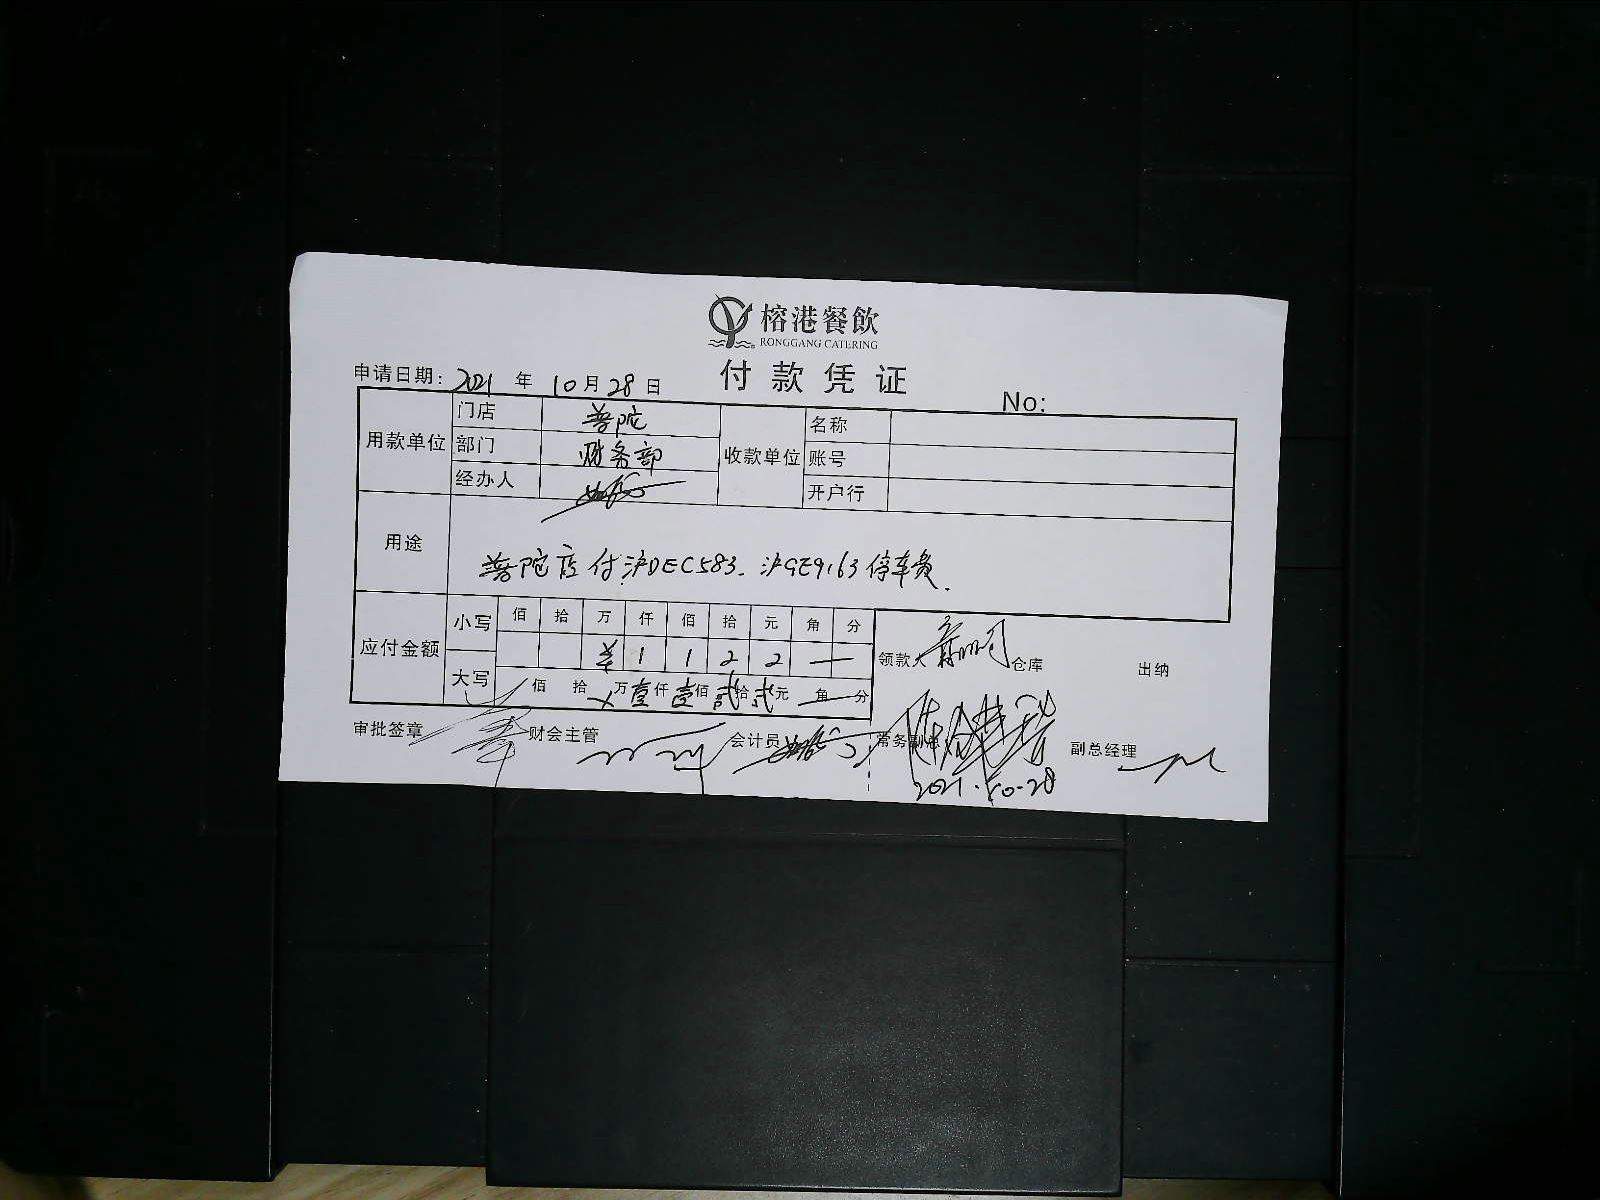 榕港餐飲
RONGGANG CATERING
付款凭证
申请日期: 2021 年 10 月 28 日
No:
用款单位 门店 普陀 收款单位 名称
部门 财务部 账号
经办人 开户行
用途 普陀店付沪DEC583、沪GE9163停车费.
应付金额 小写 佰 拾 万 仟 佰 拾 元 角 分
¥ 1 1 2 2 —
领款人 仓库 出纳
大写 佰 拾 ㄨ 万 壹 仟 壹 佰 贰 拾 贰 元 角 — 分
审批签章 财会主管 会计员 常务副总 副总经理
2021.10-28